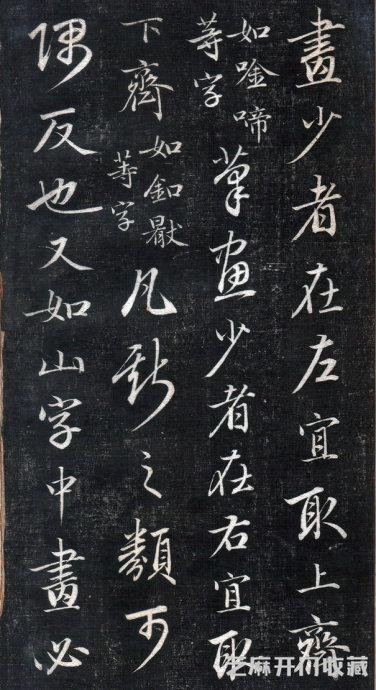 畫少者在左宜取上齊
如唫啼
等字
筆畫少者在右宜取
下齊
如釦
等字
凡斯之類可
隅反也又如山字中畫必
芝麻开门收藏